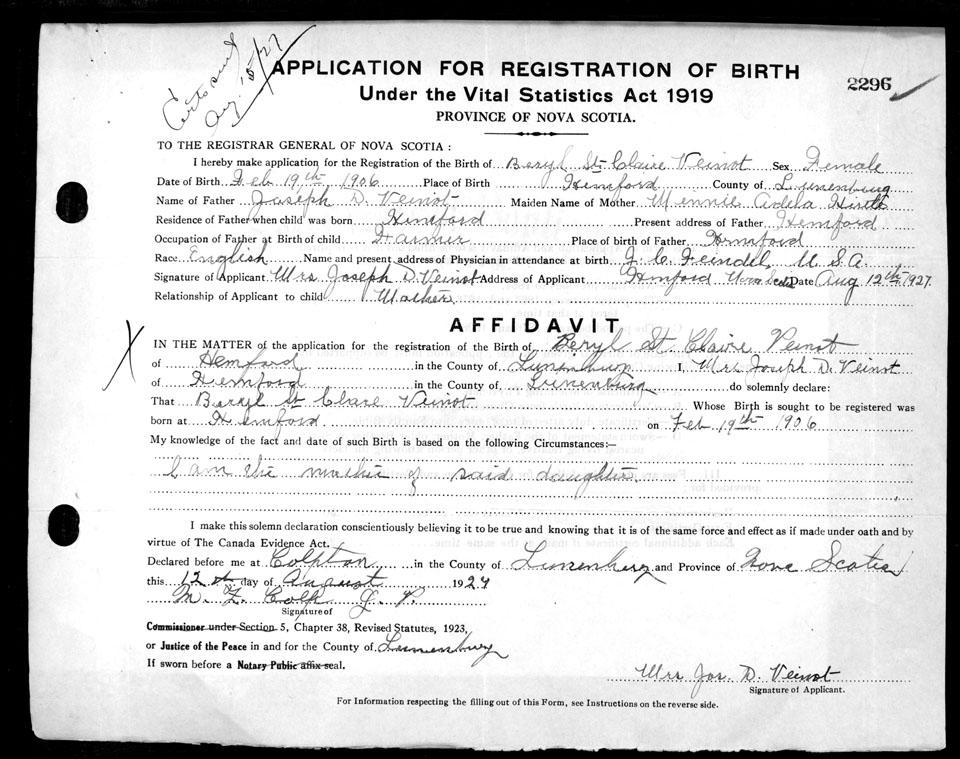 Aug. 15/27
APPLICATION FOR REGISTRATION OF BIRTH
2296
Under the Vital Statistics Act 1919
PROVINCE OF NOVA SCOTIA.
TO THE REGISTRAR GENERAL OF NOVA SCOTIA:
I hereby make application for the Registration of the Birth of Beryl St. Claire Veinot Sex Female
Date of Birth Feb 19th 1906 Place of Birth Hemford County of Lunenburg
Name of Father Joseph D. Veinot Maiden Name of Mother Minnie Adela
Residence of Father when child was born Hemford Present address of Father Hemford
Occupation of Father at Birth of child Farmer Place of birth of Father Hemford
Race English Name and present address of Physician in attendance at birth J. C. Feindel, U. S. A.
Signature of Applicant Mrs Joseph D. Veinot Address of Applicant Hemford Date Aug 12th 1927.
Relationship of Applicant to child Mother
X
AFFIDAVIT
IN THE MATTER of the application for the registration of the Birth of Beryl St Claire Veinot
of Hemford in the County of Lunenburg I, Mrs Joseph D. Veinot
of Hemford in the County of Lunenburg do solemnly declare:
That Beryl St Clare Veinot Whose Birth is sought to be registered was
born at Hemford on Feb 19th 1906
My knowledge of the fact and date of such Birth is based on the following Circumstances:—
I am the mother of said daughter
I make this solemn declaration conscientiously believing it to be true and knowing that it is of the same force and effect as if made under oath and by
virtue of The Canada Evidence Act.
Declared before me at Colpton in the County of Lunenburg and Province of Nova Scotia
this 12th day of August 1927
M. L. Colp J. P.
Signature of
Commissioner under Section 5, Chapter 38, Revised Statutes, 1923,
or Justice of the Peace in and for the County of Lunenburg
If sworn before a Notary Public affix seal.
Mrs Jos. D. Veinot
Signature of Applicant.
For Information respecting the filling out of this Form, see Instructions on the reverse side.